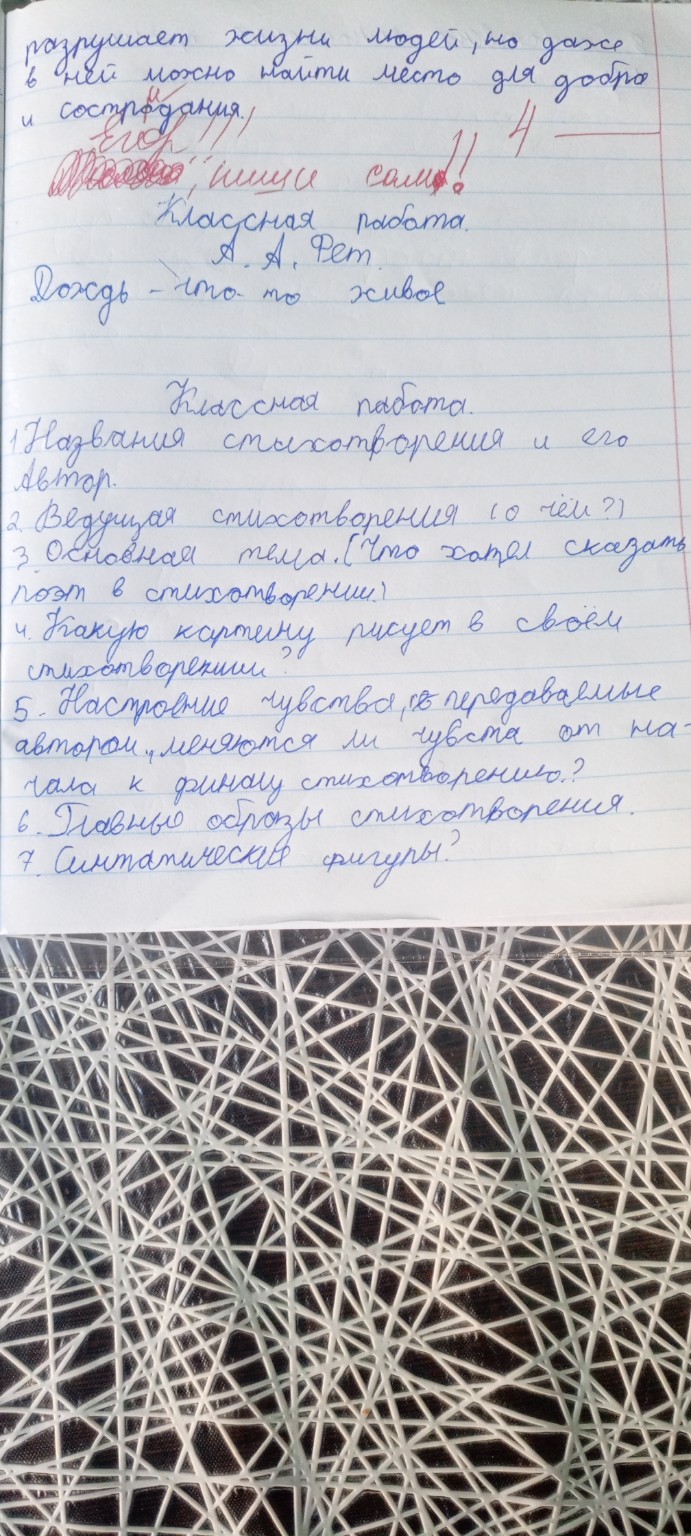 разрушает жизни людей, но даже
в ней можно найти место для добра
и сострадания.
Егор!!! 4 —
, пиши сам!!!
Классная работа.
А. А. Фет.
Дождь – что-то живое
Классная работа.
1 Названия стихотворения и его
Автор.
2. Ведущая стихотворения (о чём?)
3. Основная тема. (Что хотел сказать
поэт в стихотворении)
4. Какую картину рисует в своём
стихотворении?
5. Настроение чувства, передаваемые
автором, меняются ли чувста от на-
чала к финалу стихотворению?
6. Главные образы стихотворения.
7. Синтатические фигуры?